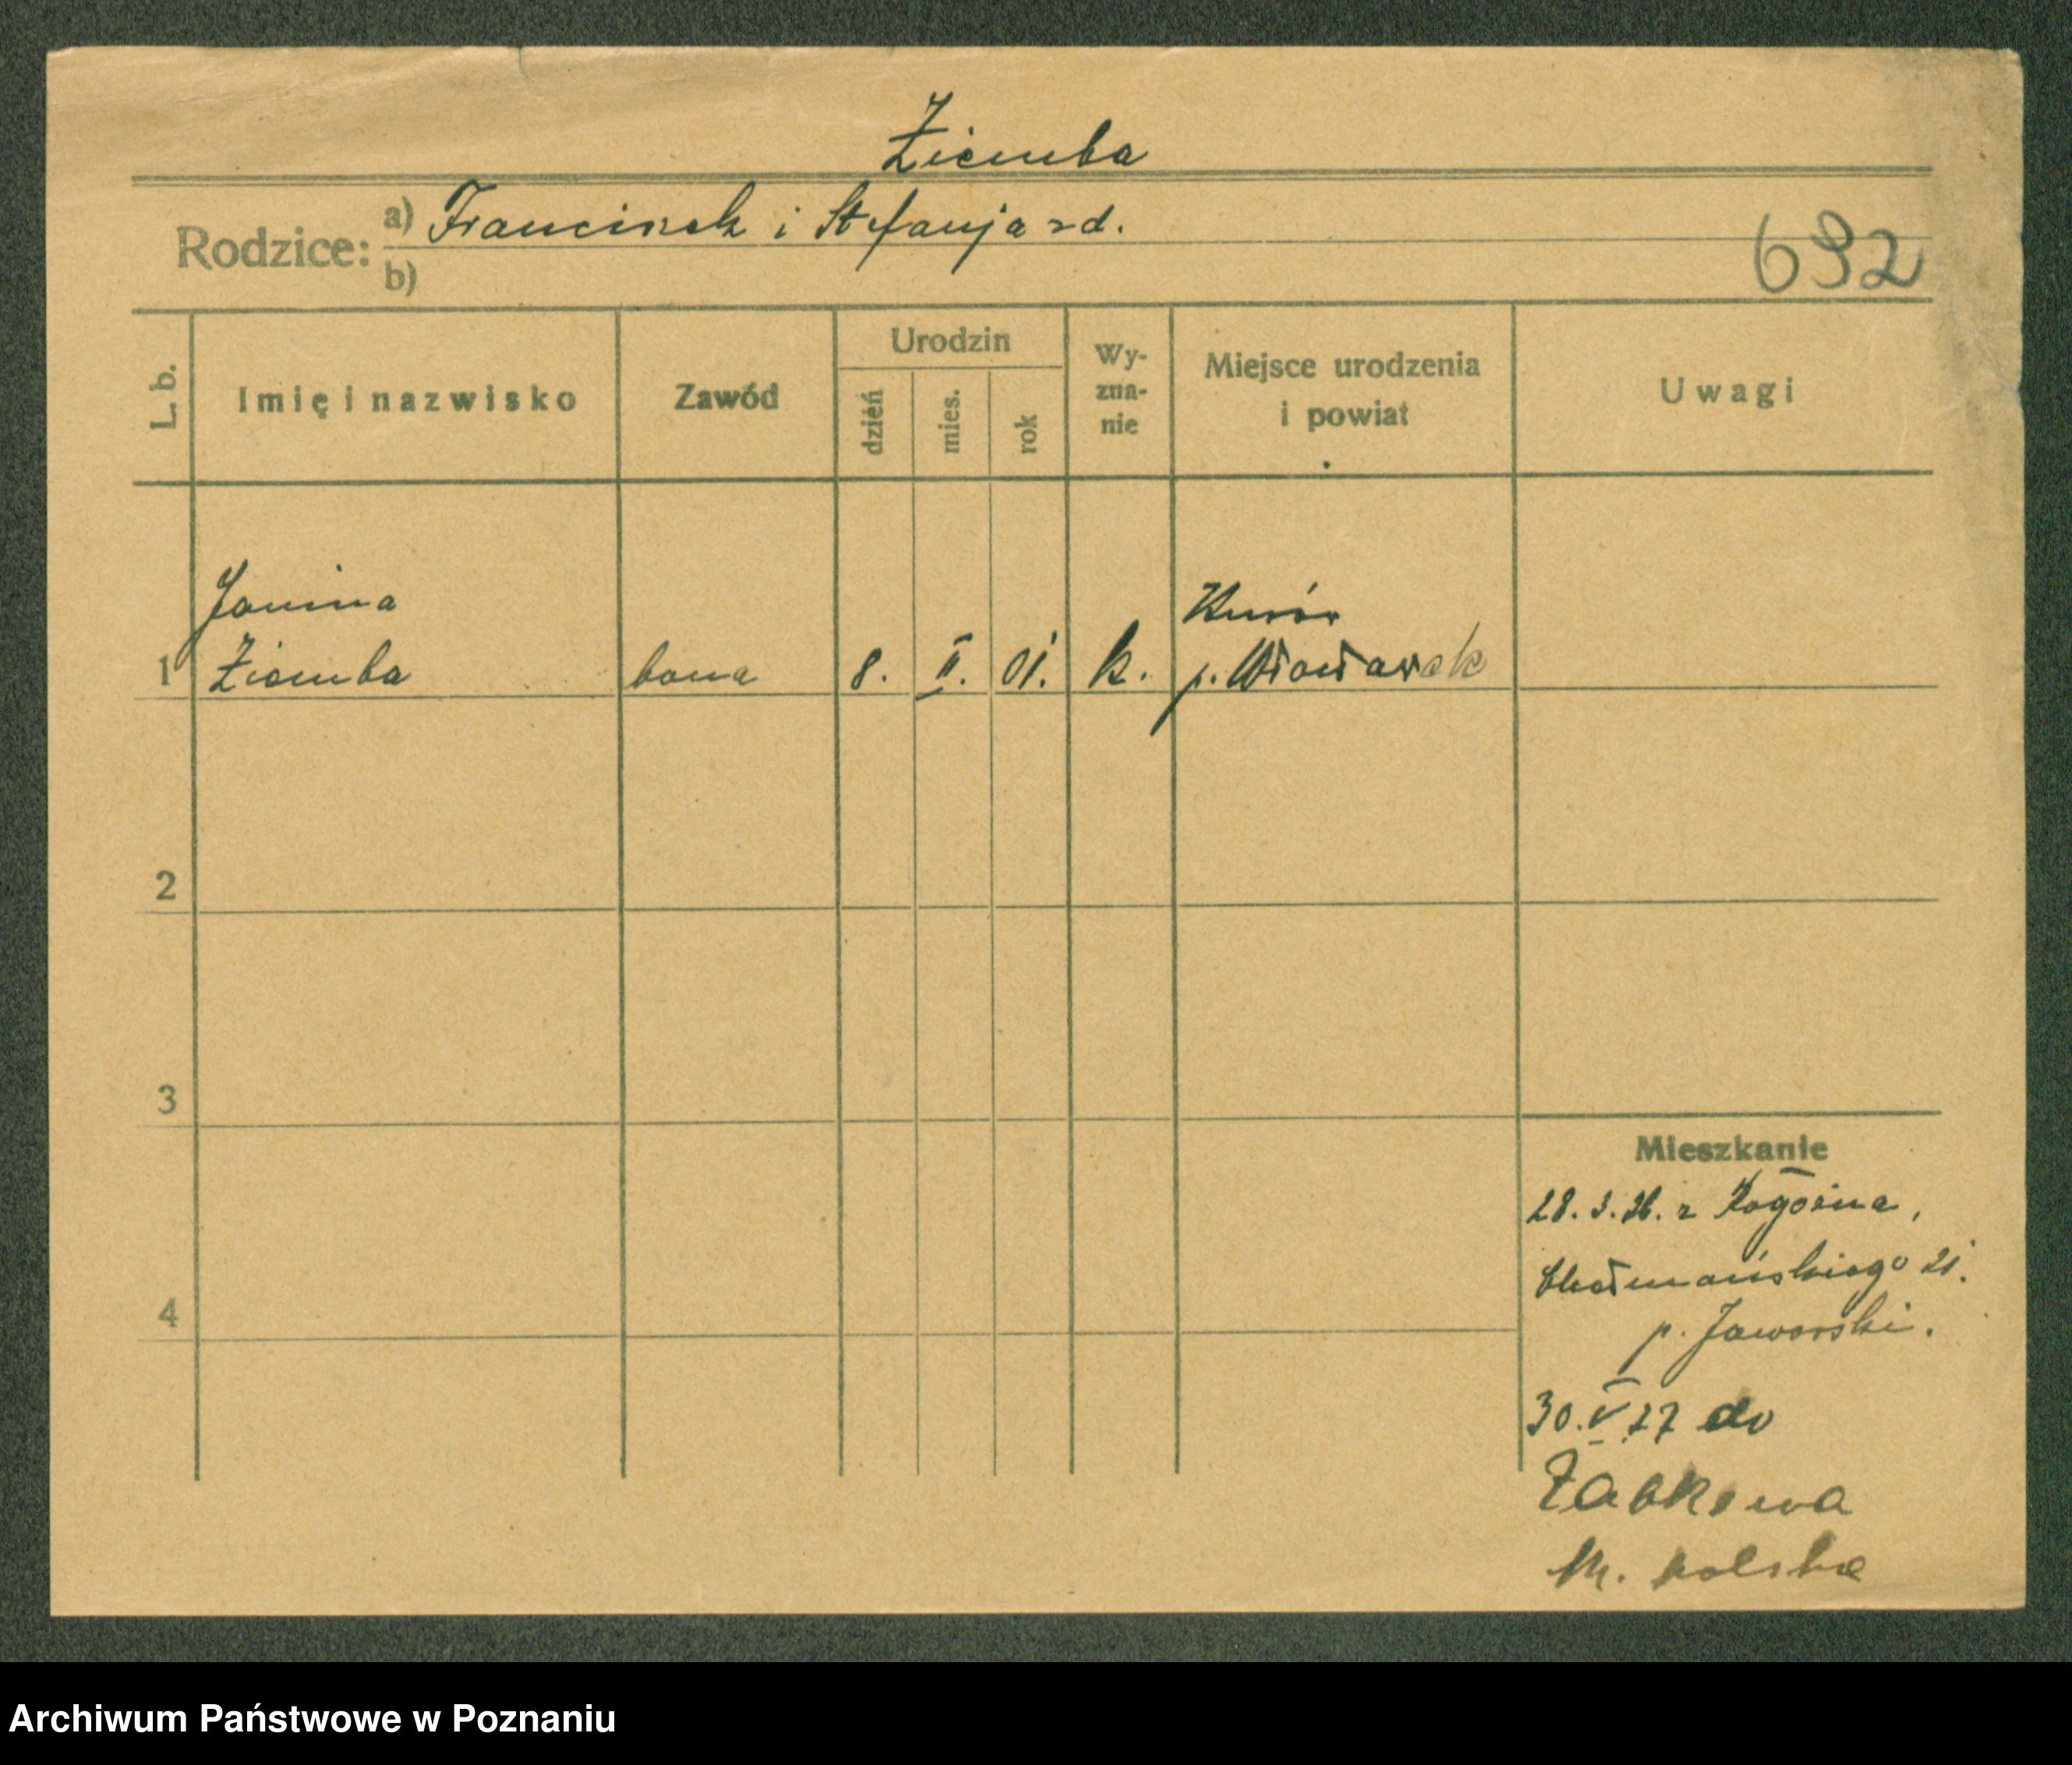 Ziemba
Rodzice: a) Franciszek i Stefanja zd.
b)
692
L. b.
Imię i nazwisko
Zawód
Urodzin
dzień
mies.
rok
Wy-
zna-
nie
Miejsce urodzenia
i powiat
Uwagi
Janina
1 Ziemba bona 8. II. 01. k.
p. Włocławek
2
3
4
Mieszkanie
28. 3. 26. z Rogoźna,
Chełmońskiego 21.
p. Jaworski.
30. V 27 do
Ząbkowa
M. polska
Archiwum Państwowe w Poznaniu